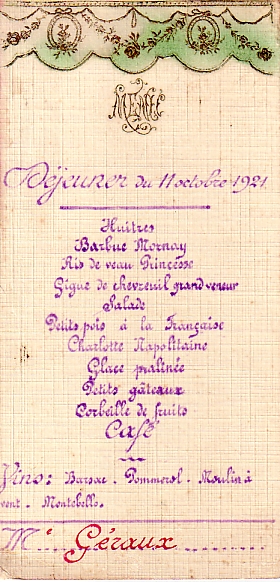 MENU
Déjeuner du 11 octobre 1921
Huitres
Barbue Mornay
Ris de veau Princesse
Gigue de chevreuil grand veneur
Salade
Petits pois à la Française
Charlotte Napolitaine
Glace pralinée
Petits gâteaux
Corbeille de fruits
Café
Vins: Barsac - Pommerol - Moulin à
vent - Montebello.
M. Géraux